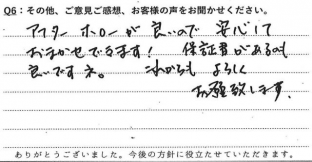 Q6：その他、ご意見ご感想、お客様の声をお聞かせください。
アフターホローが良いので 安心して
おまかせできます！ 保証書があるのも
良いですネ。 これからも よろしく
お願致します。
ありがとうございました。今後の方針に役立たせていただきます。